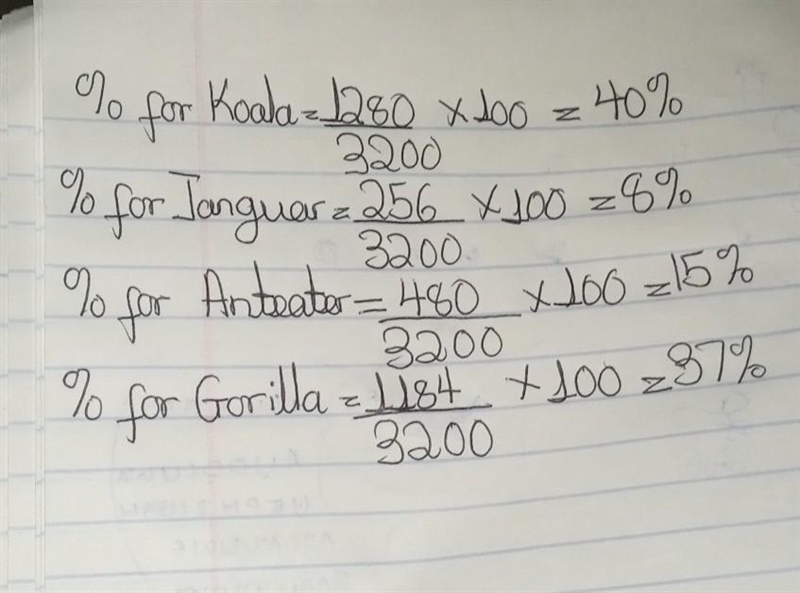 % for Koala = 1280/3200 × 100 = 40%
% for Janguar = 256/3200 × 100 = 8%
% for Anteater = 480/3200 × 100 = 15%
% for Gorilla = 1184/3200 × 100 = 37%